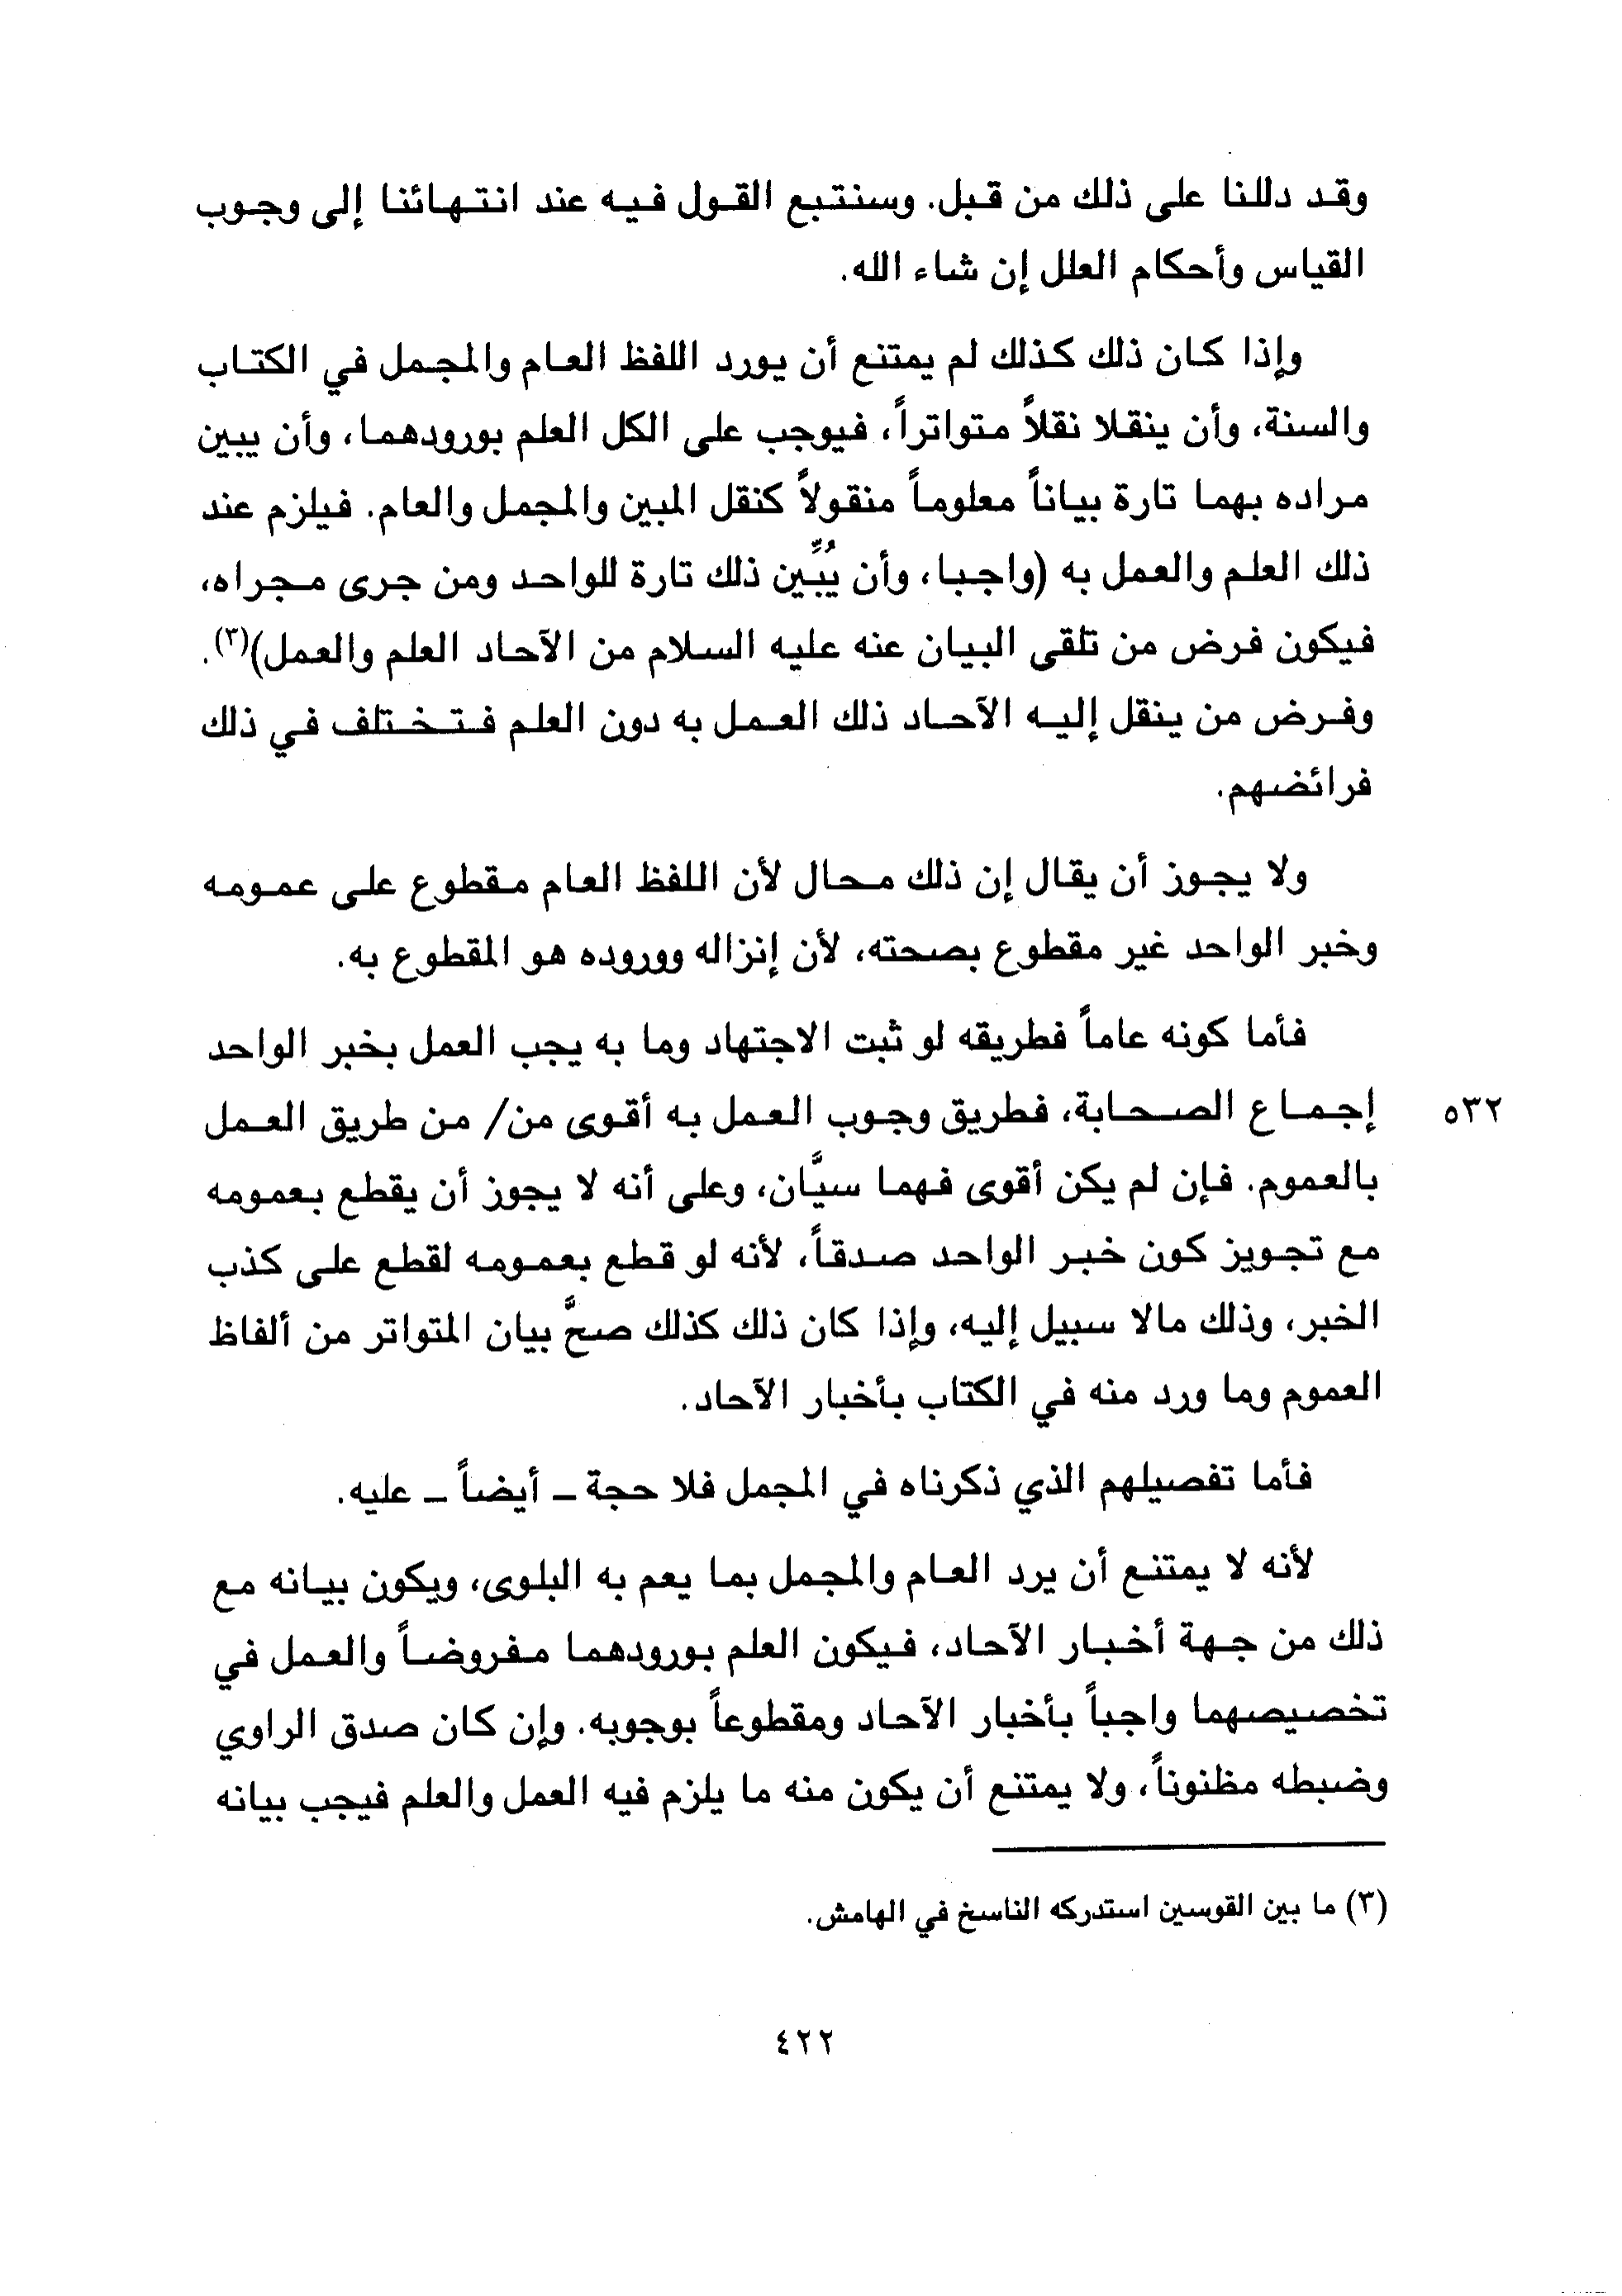 وقد دللنا على ذلك من قبل. وسنتبع القول فيه عند انتهائنا إلى وجوب
القياس وأحكام العلل إن شاء الله.
وإذا كان ذلك كذلك لم يمتنع أن يورد اللفظ العام والمجمل في الكتاب
والسنة، وأن ينقلا نقلاً متواتراً، فيوجب على الكل العلم بورودهما، وأن يبين
مراده بهما تارة بياناً معلوماً منقولاً كنقل المبين والمجمل والعام. فيلزم عند
ذلك العلم والعمل به (واجبا، وأن يُبِّين ذلك تارة للواحد ومن جرى مجراه،
فيكون فرض من تلقى البيان عنه عليه السلام من الآحاد العلم والعمل)(٣).
وفرض من ينقل إليه الآحاد ذلك العمل به دون العلم فتختلف في ذلك
فرائضهم.
ولا يجوز أن يقال إن ذلك محال لأن اللفظ العام مقطوع على عمومه
وخبر الواحد غير مقطوع بصحته، لأن إنزاله ووروده هو المقطوع به.
فأما كونه عاماً فطريقه لو ثبت الاجتهاد وما به يجب العمل بخبر الواحد
إجماع الصحابة، فطريق وجوب العمل به أقوى من/ من طريق العمل ٥٣٢
بالعموم. فإن لم يكن أقوى فهما سيَّان، وعلى أنه لا يجوز أن يقطع بعمومه
مع تجويز كون خبر الواحد صدقاً، لأنه لو قطع بعمومه لقطع على كذب
الخبر، وذلك مالا سبيل إليه، وإذا كان ذلك كذلك صحَّ بيان المتواتر من ألفاظ
العموم وما ورد منه في الكتاب بأخبار الآحاد.
فأما تفصيلهم الذي ذكرناه في المجمل فلا حجة ـ أيضاً ـ عليه.
لأنه لا يمتنع أن يرد العام والمجمل بما يعم به البلوى، ويكون بيانه مع
ذلك من جهة أخبار الآحاد، فيكون العلم بورودهما مفروضاً والعمل في
تخصيصهما واجباً بأخبار الآحاد ومقطوعاً بوجوبه. وإن كان صدق الراوي
وضبطه مظنوناً، ولا يمتنع أن يكون منه ما يلزم فيه العمل والعلم فيجب بيانه
(٣) ما بين القوسين استدركه الناسخ في الهامش.
٤٢٢